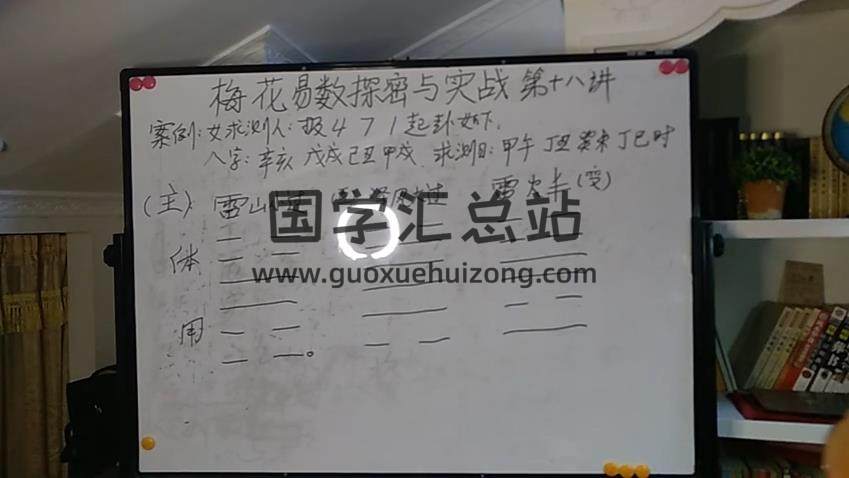 梅花易数探密与实战 第十八讲
案例:女求测人:报4 7 1起卦如下.
八字:辛亥 戊戌 己丑 甲戌 求测日:甲午 丁丑 癸未 丁巳时
(主) 雷山 雷火丰(变)
国学汇总站
www.guoxuehuizong.com
体
用